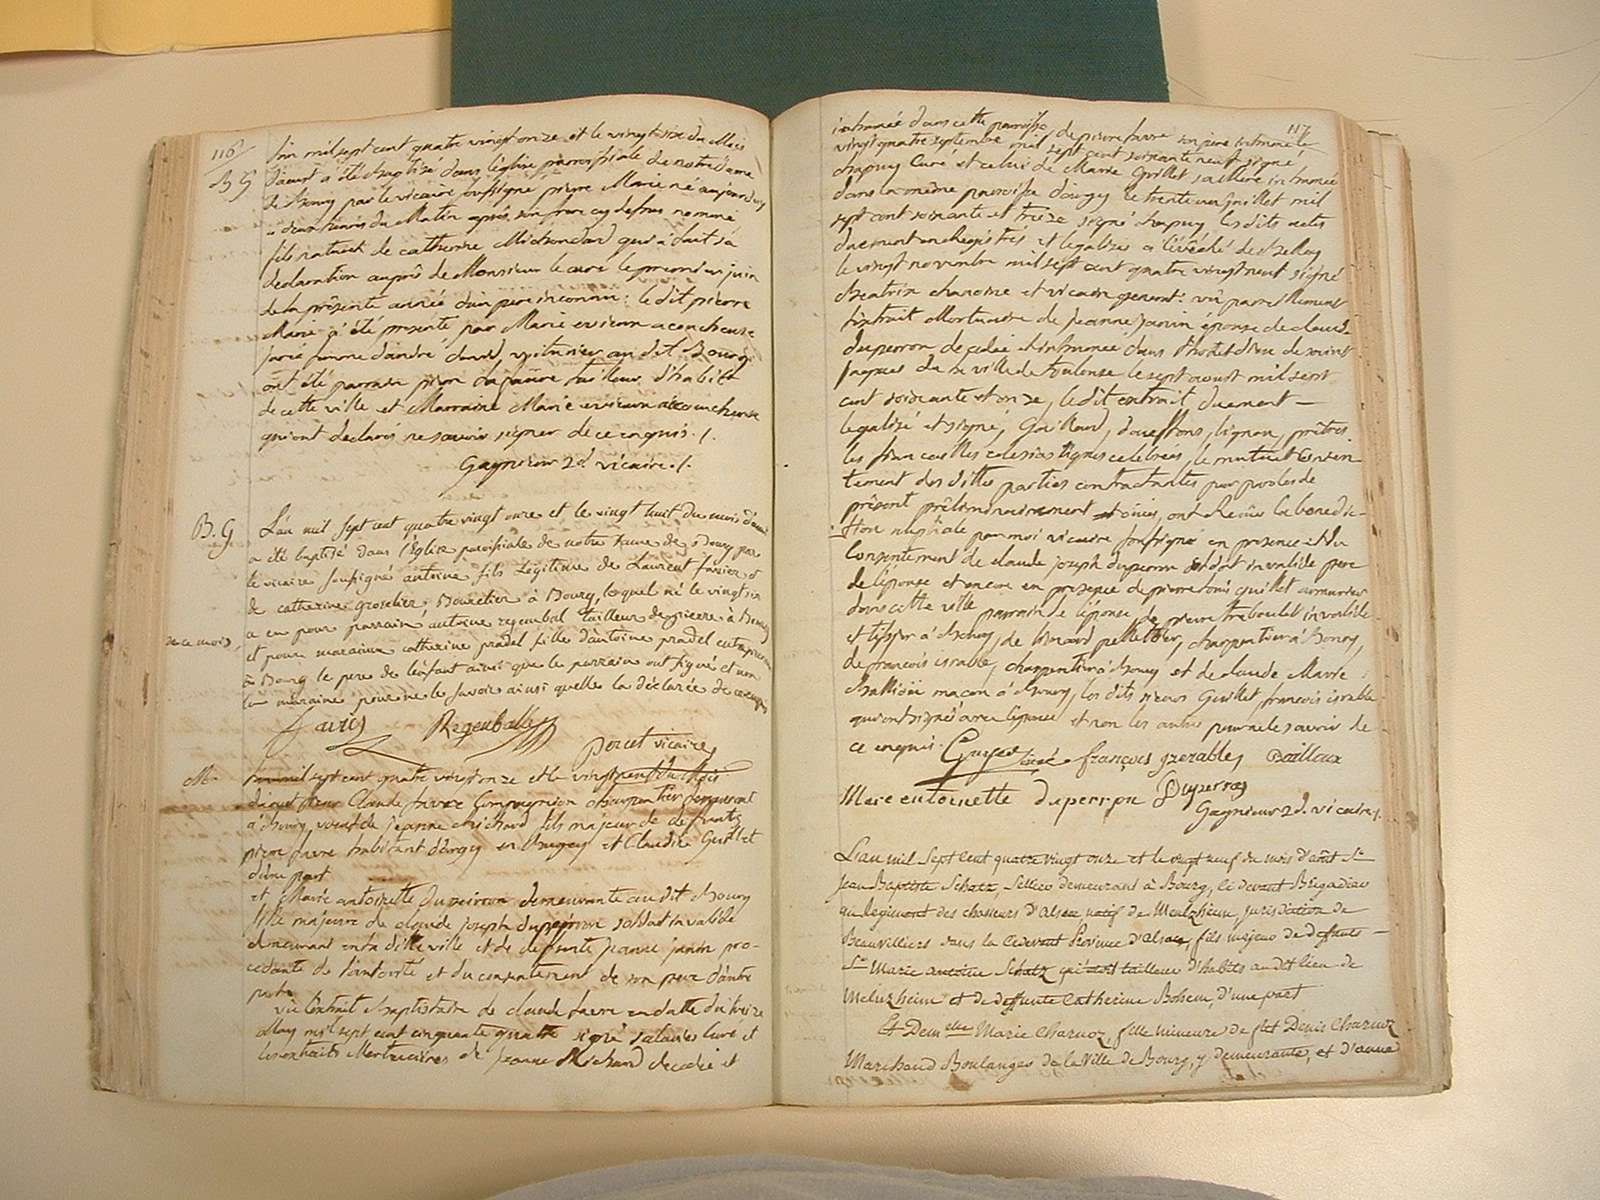 116
B G
L'an mil sept cent quatre vingt onze et le vingt six du Mois
d'aoust a été baptisé dans l'église parroissiale de notre dame
de Bourg par le vicaire soussigné pierre Marie né aujourdhuy
à deux heures du Matin après son frere cy dessus nommé
fils naturel de catherine qui a fait sa
declaration auprès de Monsieur le curé le premier juin
de la présente année d'un pere inconnu: le dit pierre
Marie a été presenté par Marie acoucheuse
jurée femme d'andré david, voiturier au dit Bourg
ont été parrain pierre tailleur d'habits
de cette ville et Marraine Marie accoucheuse
qui ont declarés ne savoir signer de ce enquis ./.
Gagnieur 2d. vicaire ./.
B. G
L'an mil sept cent quatre vingt onze et le vingt huit du mois d'aout
a été baptisé dans l'Eglise paroissiale de notre dame de Bourg par
le vicaire soussigné antoine fils Légitime de Laurent favier et
de catherine groselier, Bourelier à Bourg, lequel né le vingt six
de ce mois,
a eu pour parrain antoine regembal tailleur de pierre à Bourg
et pour maraine catherine pradel fille d'antoine pradel entrepreneur
à Bourg le pere de l'enfant ainsi que le parrain ont signé et non
la maraine pour ne le savoir ainsi quelle la déclarée de ce enquis
favier Regembal
Porcet vicaire
M.
L'an mil sept cent quatre vingt onze et le vingt neuf du Mois
d'aoust sieur Claude favre Compagnion charpentier demeurant
à Bourg, veuf de jeanne Michard fils majeur de defunts
pierre favre habitant d'orgey en Bugey et Claudie Guillet
d'une part
et Marie antoinette Duperron demeurante au dit Bourg
fille majeure de claude joseph duperron soldat invalide
demeurant en la dite ville et de defunte jeanne janin pro-
cedante de l'autorité et du consentement de son pere d'autre
part
vû l'extrait Baptistaire de claude favre en datte du treize
May mil sept cent cinquante quatre signé curé et
les extraits Mortuaires de jeanne Michard decedée et
117
inhumée dans cette parroisse, de pierre favre son pere inhumé le
vingt quatre septembre mil sept cent soixante neuf signé
chapuy Curé et celui de Marie Guillet sa Mere inhumée
dans la même paroisse d'orgey le trente un juillet mil
sept cent soixante et treize signé chapuy les dits actes
duement enregistrés et legalisés à l'évêché de Belley
le vingt novembre mil sept cent quatre vingt neuf signé
chanoine et vicaire general: vû pareillement
l'extrait Mortuaire de jeanne janin épouse de claude
duperron decedée et inhumée dans l'hotel dieu de saint
jaques de la ville de toulouse le sept aoust mil sept
cent soixante et onze, le dit extrait duement —
legalisé et signé, Gaillard, prêtres.
les fiancailles eclesiastiques celebrées, le mutuel consen
tement des dittes parties contractantes par paroles de
présent préliminairement ouies, ont Recûs la bénédic-
tion nuptiale par moi vicaire soussigné en presence et du
Consentement de claude joseph duperron soldat invalide pere
de l'épouse et encore en presence de pierre guillet armurier
dans cette ville parrain de l'épouse, de pierre traboulet invalide
et tissier à Bourg, de pelletier, charpentier à Bourg,
de francois israble, charpentier à Bourg et de claude Marie
Ballion macon à Bourg, les dits sieurs Guillet, francois israble
qui ont signés avec l'épouse et non les autres pour ne le savoir de
ce enquis.
françois yzerable, Bailloux
Marie entoinette duperron Duperron
Gagnieur 2d. vicaire ./.
L'an mil Sept Cent quatre vingt onze et le vingt neuf du mois d'août Sr.
Jean Baptiste Schatz, Sellier demeurant à Bourg, ci devant Brigadier
au Regiment des chasseurs d'Alsace, natif de Meulzheim, jurisdiction de
Beauvilliers dans la Cidevant Province d'Alsace, fils majeur de deffunts —
Sr. Marie antoine Schatz qui étoit tailleur d'habits audit lieu de
Meulzheim et de deffunte Catherine Boheim, d'une part
Et Demelle Marie Charnoz, fille mineure de feu Denis Charnoz
Marchand Boulanger de la Ville de Bourg, y demeurante, et d'anne